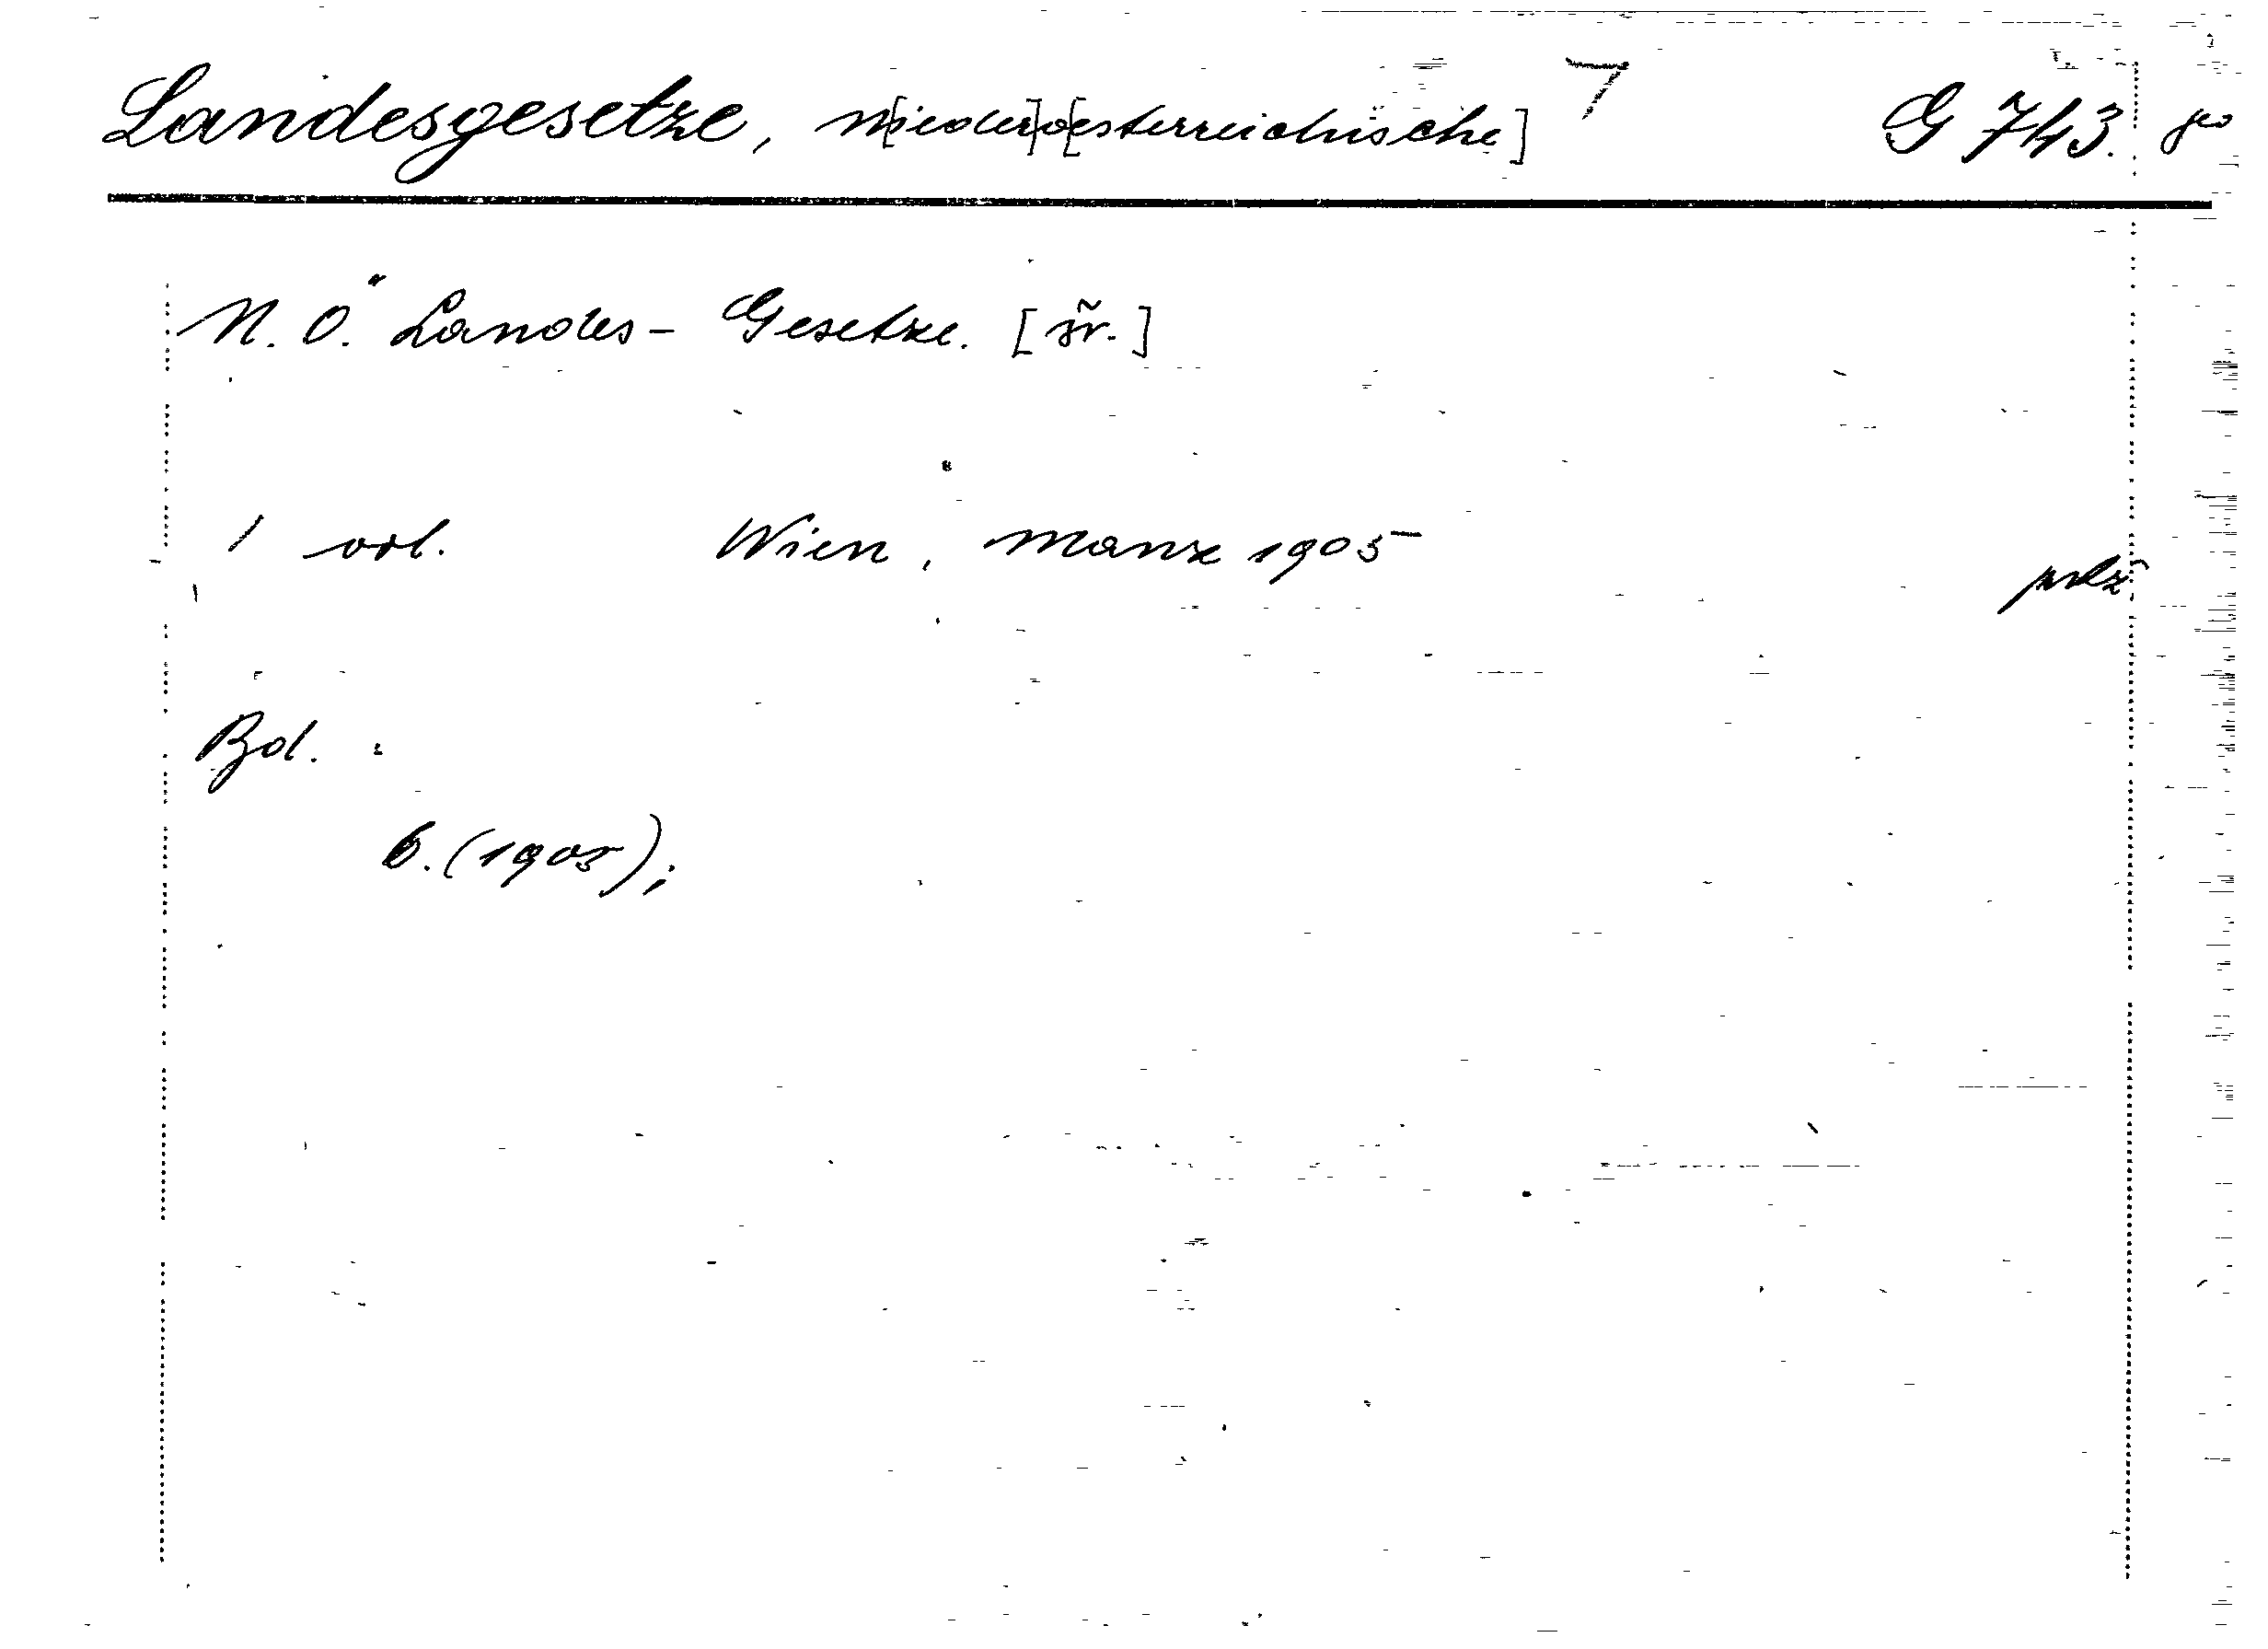 Landesgesetze, n[ieder]oe[sterreichische] 7 G 743.
N. Ö. Landes- Gesetze.
1 vol. Wien, Manz 1905
Bd. :
6. (1905);